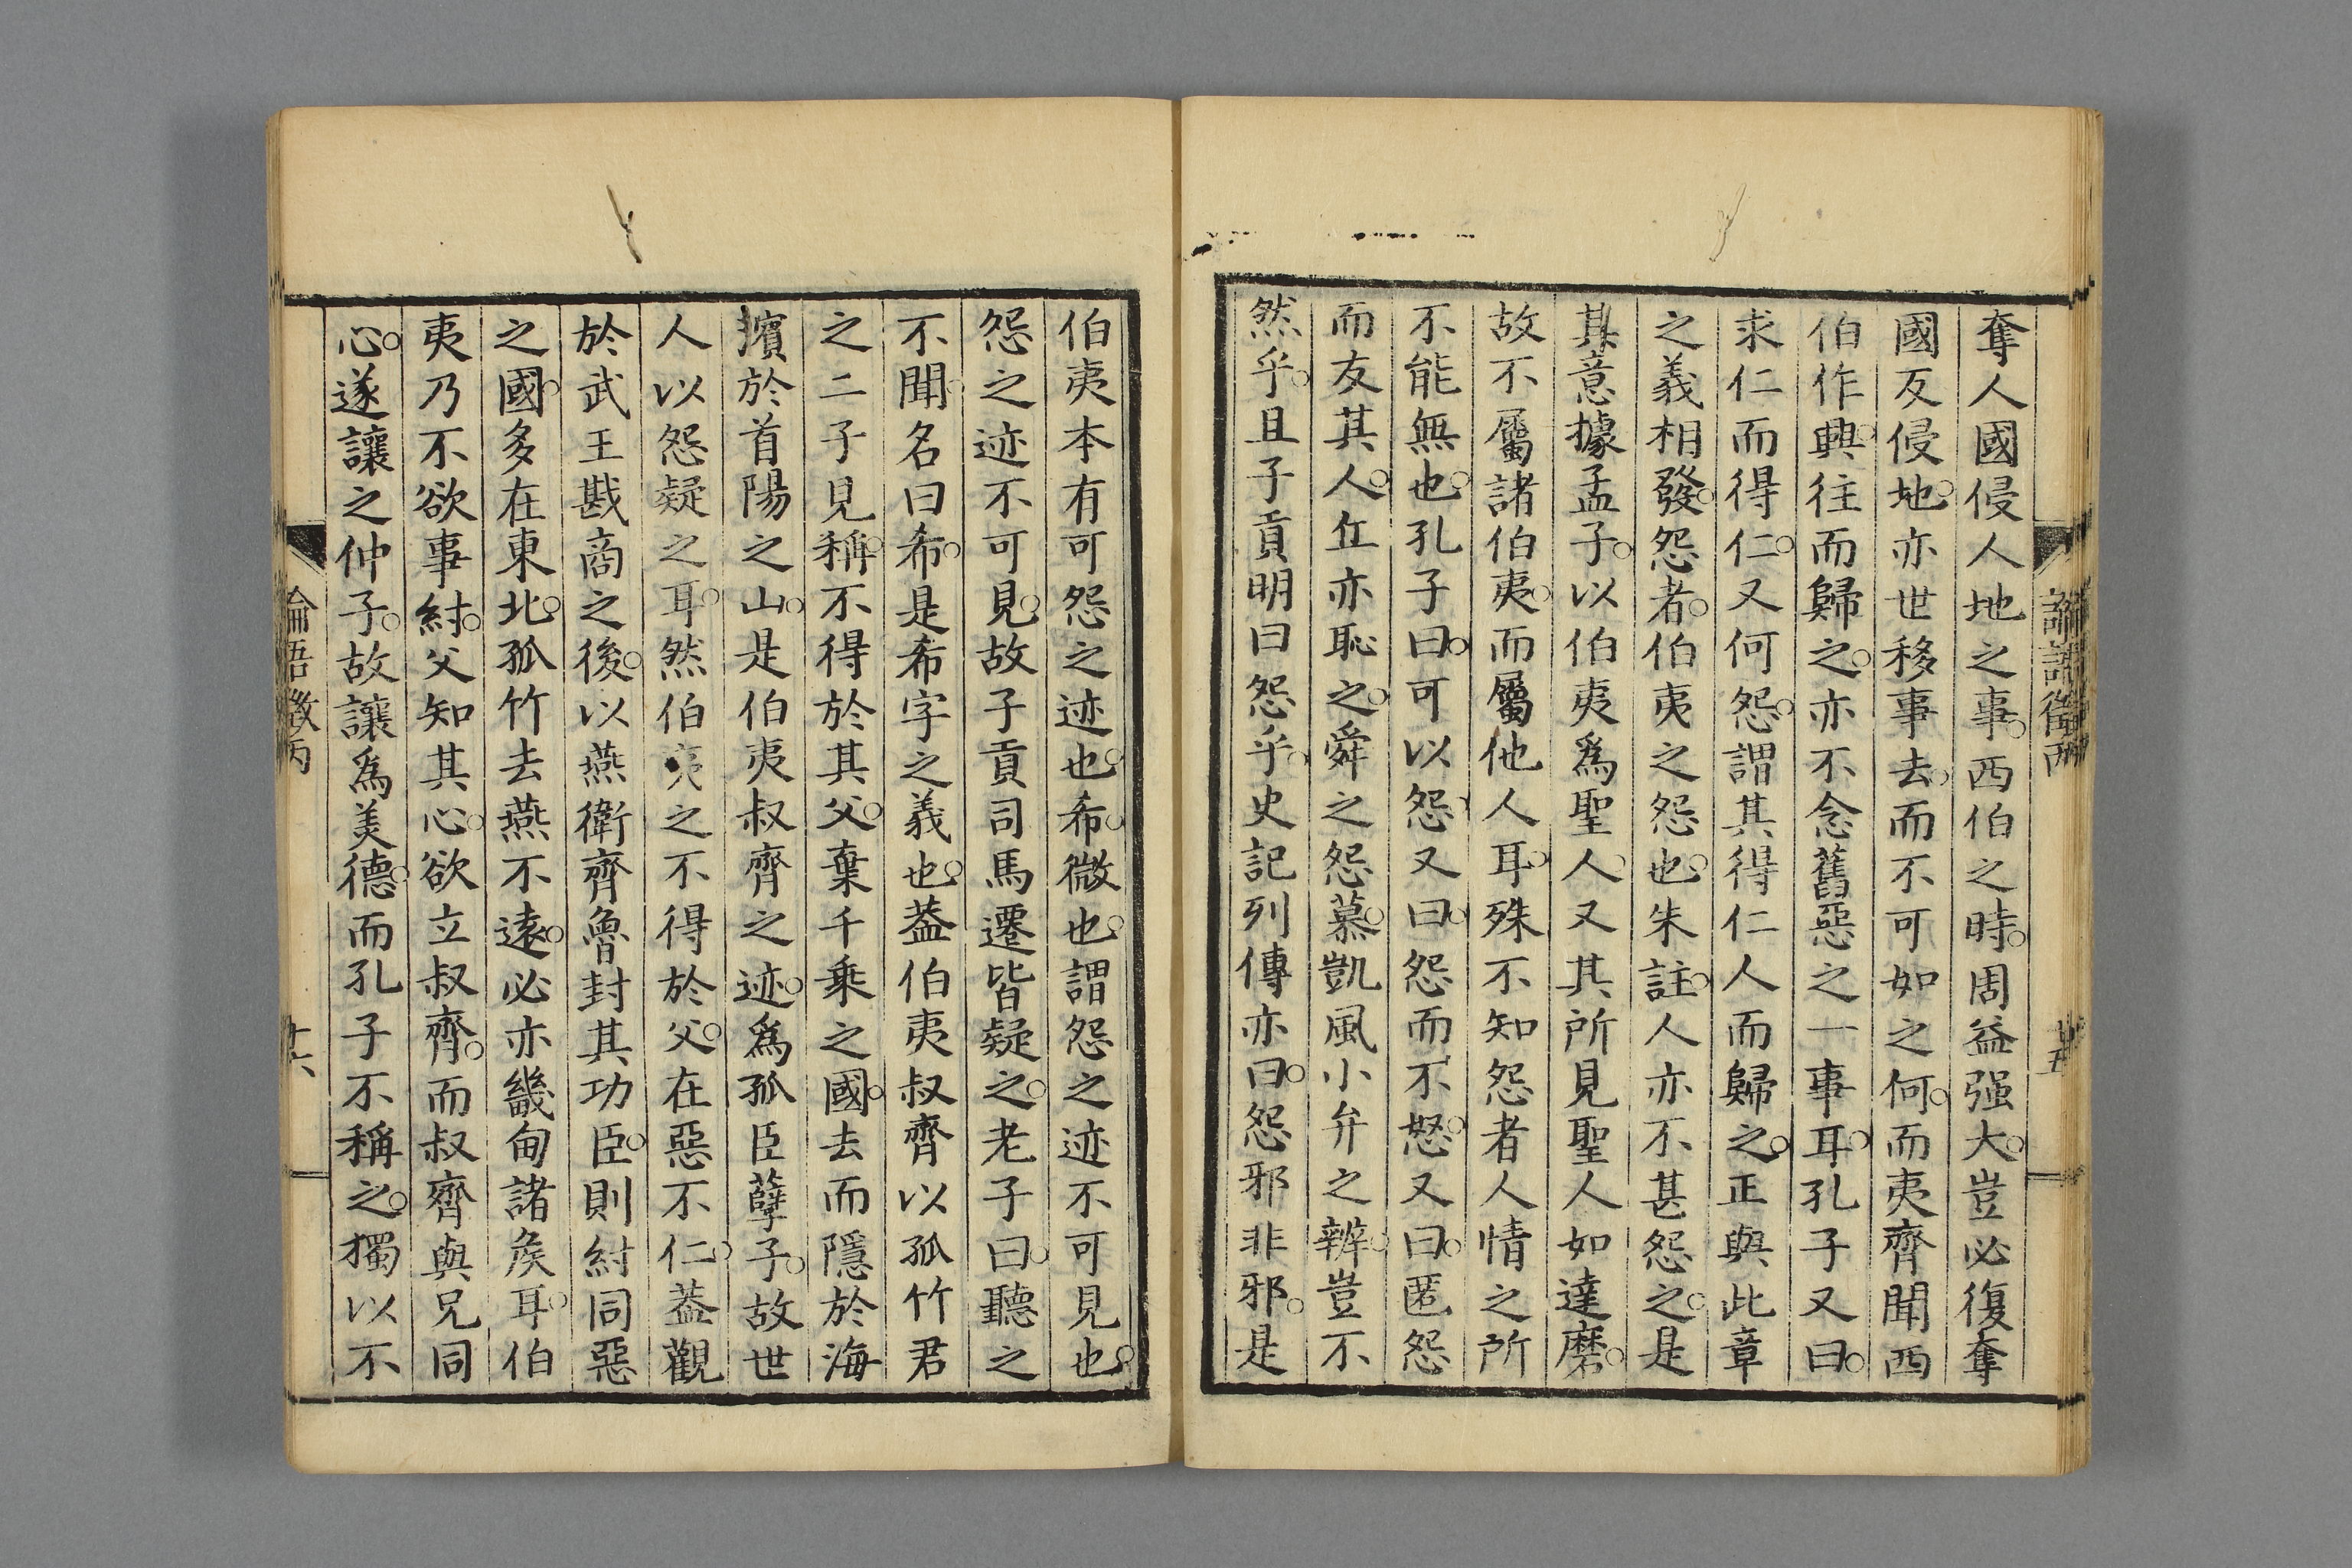 論語徵丙
十五
奪人國侵人地之事。西伯之時。周益强大。豈必復奪
國反侵地。亦世移事去。而不可如之何。而夷齊聞西
伯作興。往而歸之。亦不念舊惡之一事耳。孔子又曰。
求仁而得仁。又何怨。謂其得仁人而歸之。正與此章
之義相發。怨者。伯夷之怨也。朱註。人亦不甚怨之。是
其意據孟子。以伯夷爲聖人。又其所見聖人如達磨。
故不屬諸伯夷。而屬他人耳。殊不知怨者人情之所
不能無也。孔子曰。可以怨。又曰。怨而不怒。又曰。匿怨
而友其人。丘亦恥之。舜之怨慕。凱風小弁之辨。豈不
然乎。且子貢明曰怨乎。史記列傳亦曰。怨邪非邪。是
伯夷本有可怨之迹也。希微也。謂怨之迹不可見也。
怨之迹不可見。故子貢司馬遷皆疑之。老子曰。聽之
不聞。名曰希。是希字之義也。葢伯夷叔齊以孤竹君
之二子見稱。不得於其父。棄千乗之國。去而隱於海
濱於首陽之山。是伯夷叔齊之迹。爲孤臣孽子。故世
人以怨疑之耳。然伯夷之不得於父。在惡不仁。葢觀
於武王戡商之後。以燕衛齊魯封其功臣。則紂同惡
之國。多在東北。孤竹去燕不遠。必亦畿甸諸矦耳。伯
夷乃不欲事紂。父知其心。欲立叔齊。而叔齊與兄同
心。遂讓之仲子。故讓爲美德。而孔子不稱之。獨以不
論語徵丙
十六